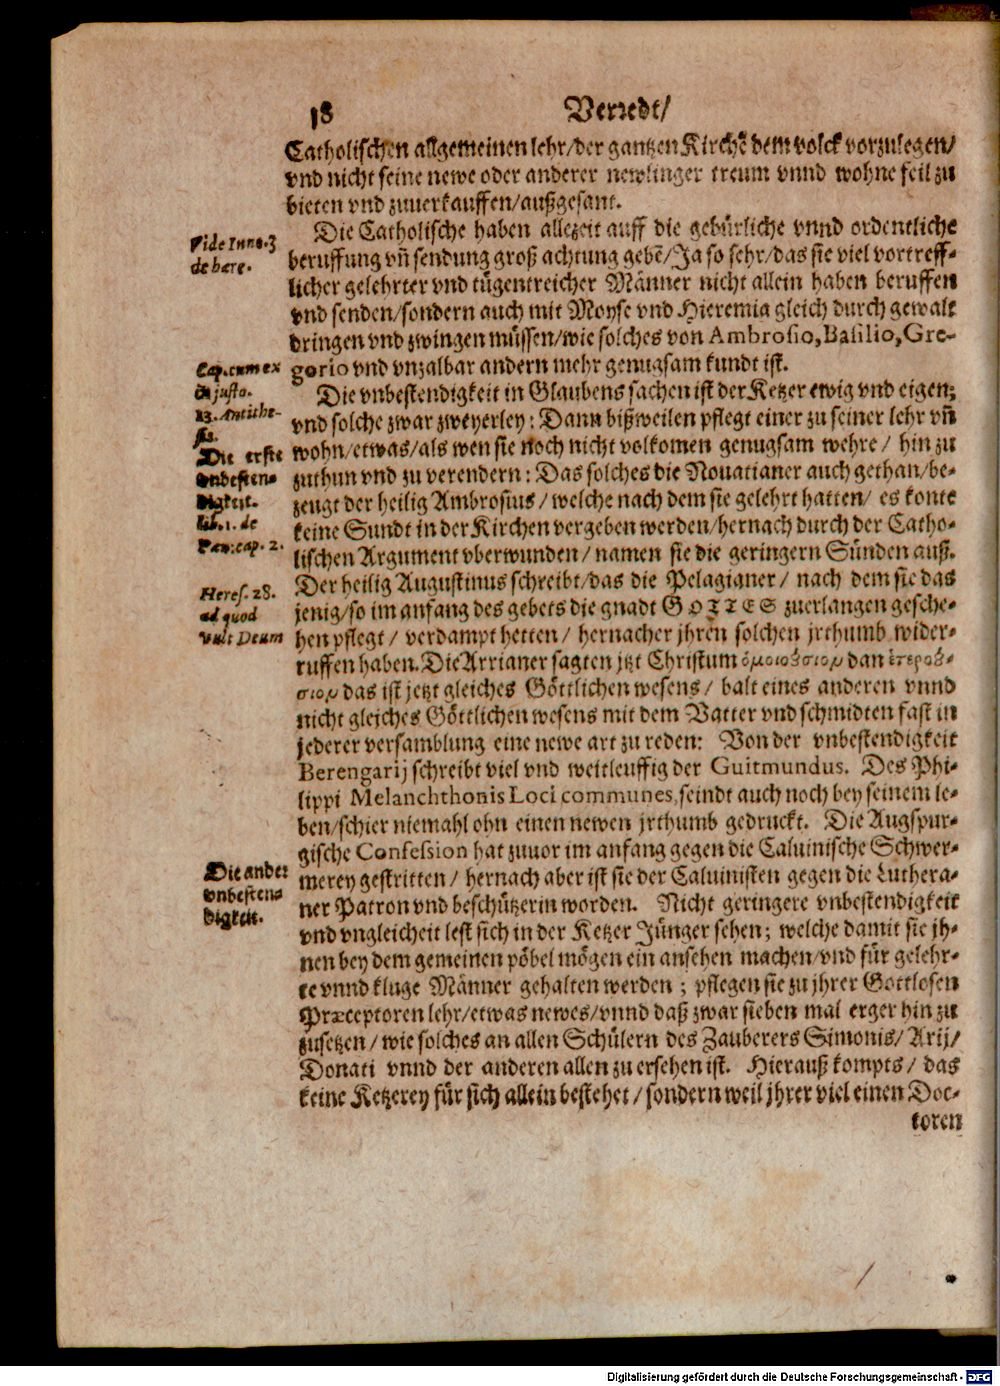 18
Verredt/
Catholischen allgemeinen lehr/der gantzen Kirchē dem volck vorzulegen/
vnd nicht seine newe oder anderer newlinger treum vnnd wohne feil zu
bieten vnd zuuerkauffen/außgesant.
Die Catholische haben allezeit auff die gebürliche vnnd ordentliche
beruffung vñ sendung groß achtung gebē/Ja so sehr/das sie viel vortreff-
licher gelehrter vnd tügentreicher Männer nicht allein haben beruffen
vnd senden/sondern auch mit Moyse vnd Hieremia gleich durch gewalt
dringen vnd zwingen müssen/wie solches von Ambrosio, Basilio, Gre-
gorio vnd vnzalbar andern mehr genugsam kundt ist.
Vide Inno. 3
de hære.
Die vnbestendigkeit in Glaubens sachen ist der Ketzer ewig vnd eigen;
vnd solche zwar zweyerley: Dann bißweilen pflegt einer zu seiner lehr vñ
wohn/etwas/als wen sie noch nicht volkomen genugsam wehre/ hin zu
zuthun vnd zu verendern: Das solches die Nouatianer auch gethan/be-
zeugt der heilig Ambrosius/ welche nach dem sie gelehrt hatten/ es konte
keine Sundt in der Kirchen vergeben werden/hernach durch der Catho-
lischen Argument vberwunden/ namen sie die geringern Sünden auß.
Der heilig Augustinus schreibt/das die Pelagianer/ nach dem sie das
jenig/so im anfang des gebets die gnadt GOTTES zuerlangen gesche-
hen pflegt/ verdampt hetten/ hernacher jhren solchen jrthumb wider-
ruffen haben. Die Arrianer sagten jtzt Christum ὁμοιούσιον dan ἑτεροού-
σιον das ist jetzt gleiches Göttlichen wesens/ balt eines anderen vnnd
nicht gleiches Göttlichen wesens mit dem Vatter vnd schmidten fast in
jederer versamblung eine newe art zu reden: Von der vnbestendigkeit
Berengarij schreibt viel vnd weitleuffig der Guitmundus. Des Phi-
lippi Melanchthonis Loci communes, seindt auch noch bey seinem le-
ben/schier niemahl ohn einen newen jrthumb gedruckt. Die Augspur-
gische Confession hat zuuor im anfang gegen die Caluinische Schwer-
merey gestritten/ hernach aber ist sie der Caluinisten gegen die Luthera-
ner Patron vnd beschützerin worden. Nicht geringere vnbestendigkeit
vnd vngleicheit lest sich in der Ketzer Jünger sehen; welche damit sie jh-
nen bey dem gemeinen pöbel mögen ein ansehen machen/vnd für gelehr-
te vnnd kluge Männer gehalten werden; pflegen sie zu jhrer Gottlosen
Præceptoren lehr/etwas newes/vnnd daß zwar sieben mal erger hin zu
zusetzen/ wie solches an allen Schülern des Zauberers Simonis/ Arij/
Donati vnnd der anderen allen zu ersehen ist. Hierauß kompts/ das
keine Ketzerey für sich allein bestehet/ sondern weil jhrer viel einen Doc-
toren
Cap. cum ex
injusto.
23. Antithe-
sis.
Die erste
vnbesten-
digkeit.
lib. 1. de
Pœn: cap. 2.
Heres. 28.
ad quod
vult Deum
Die ander
vnbesten-
digkeit.
Digitalisierung gefördert durch die Deutsche Forschungsgemeinschaft - DFG